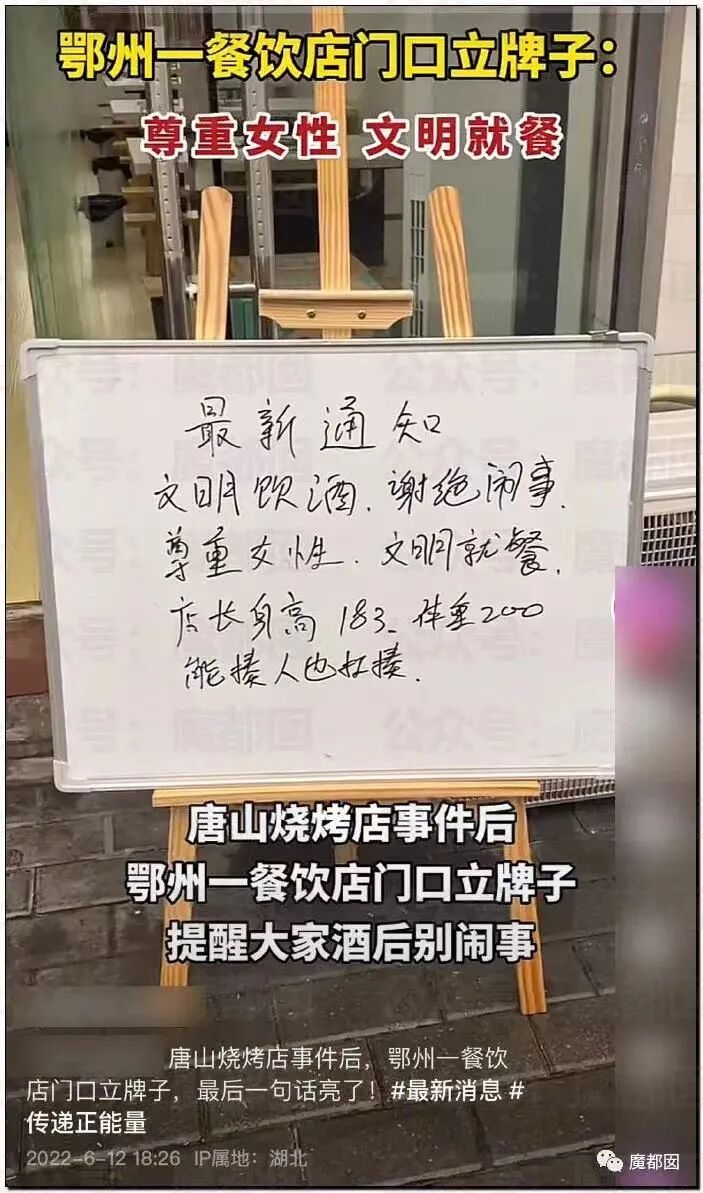 鄂州一餐饮店门口立牌子：
尊重女性 文明就餐
最新通知
文明饮酒、谢绝闹事、
尊重女性、文明就餐、
店长身高183、体重200
能揍人也扛揍.
唐山烧烤店事件后
鄂州一餐饮店门口立牌子
提醒大家酒后别闹事
唐山烧烤店事件后，鄂州一餐饮
店门口立牌子，最后一句话亮了！#最新消息 #
传递正能量
2022-6-12 18:26 IP属地：湖北
公众号：魔都囡
魔都囡